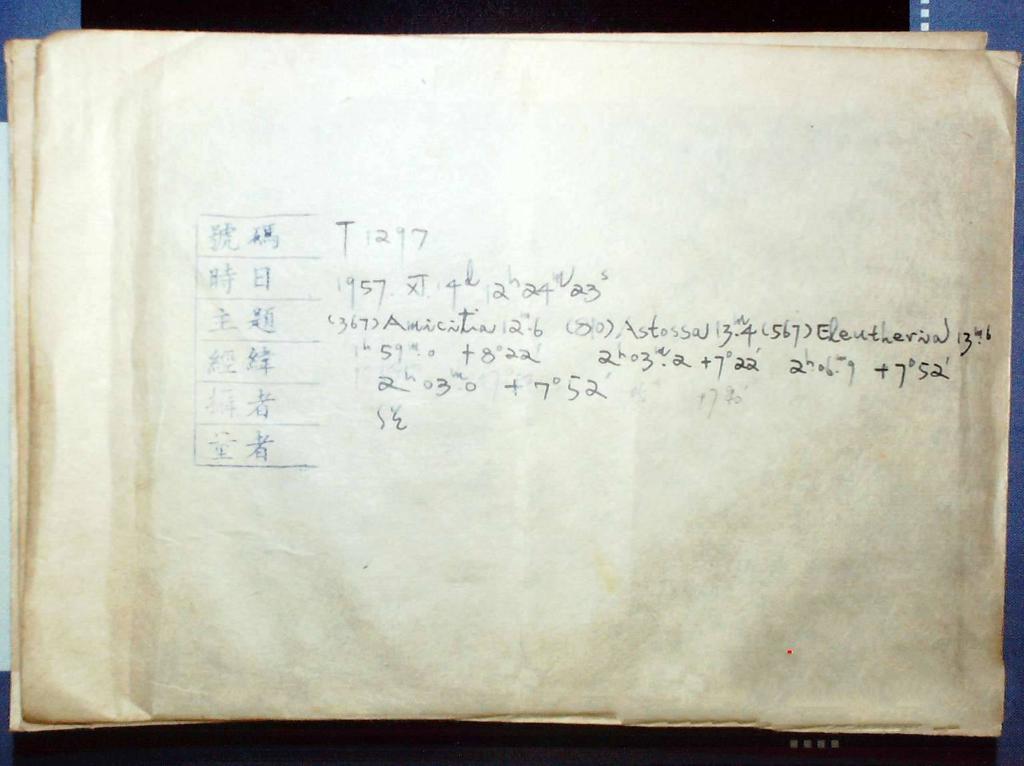 號碼 T 1297
時日 1957. XI. 4d 12h24m23s
主題 (367) Amicitia 12m.6 (810) Astossa 13m.4 (567) Eleutheria 13m.6
經緯 1h59m.0 +8°22' 2h03m.2 +7°22' 2h06m.9 +7°52'
2h03m.0 +7°52'
攝者
量者